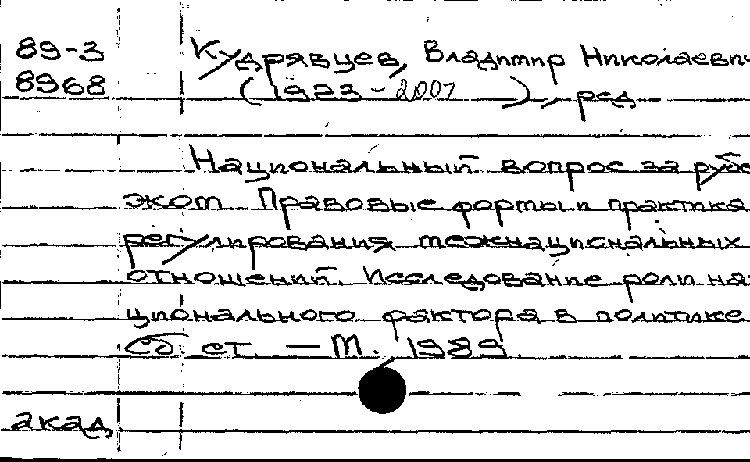 89-3
8968
Кудрявцев, Владимир Николаевич
(1923-2007), ред.
Национальный вопрос за рубе
жом. Правовые формы и практика
регулирования межнациональных
отношений. Исследование роли на
ционального фактора в политике
Сб. ст. — М. 1989
акад.